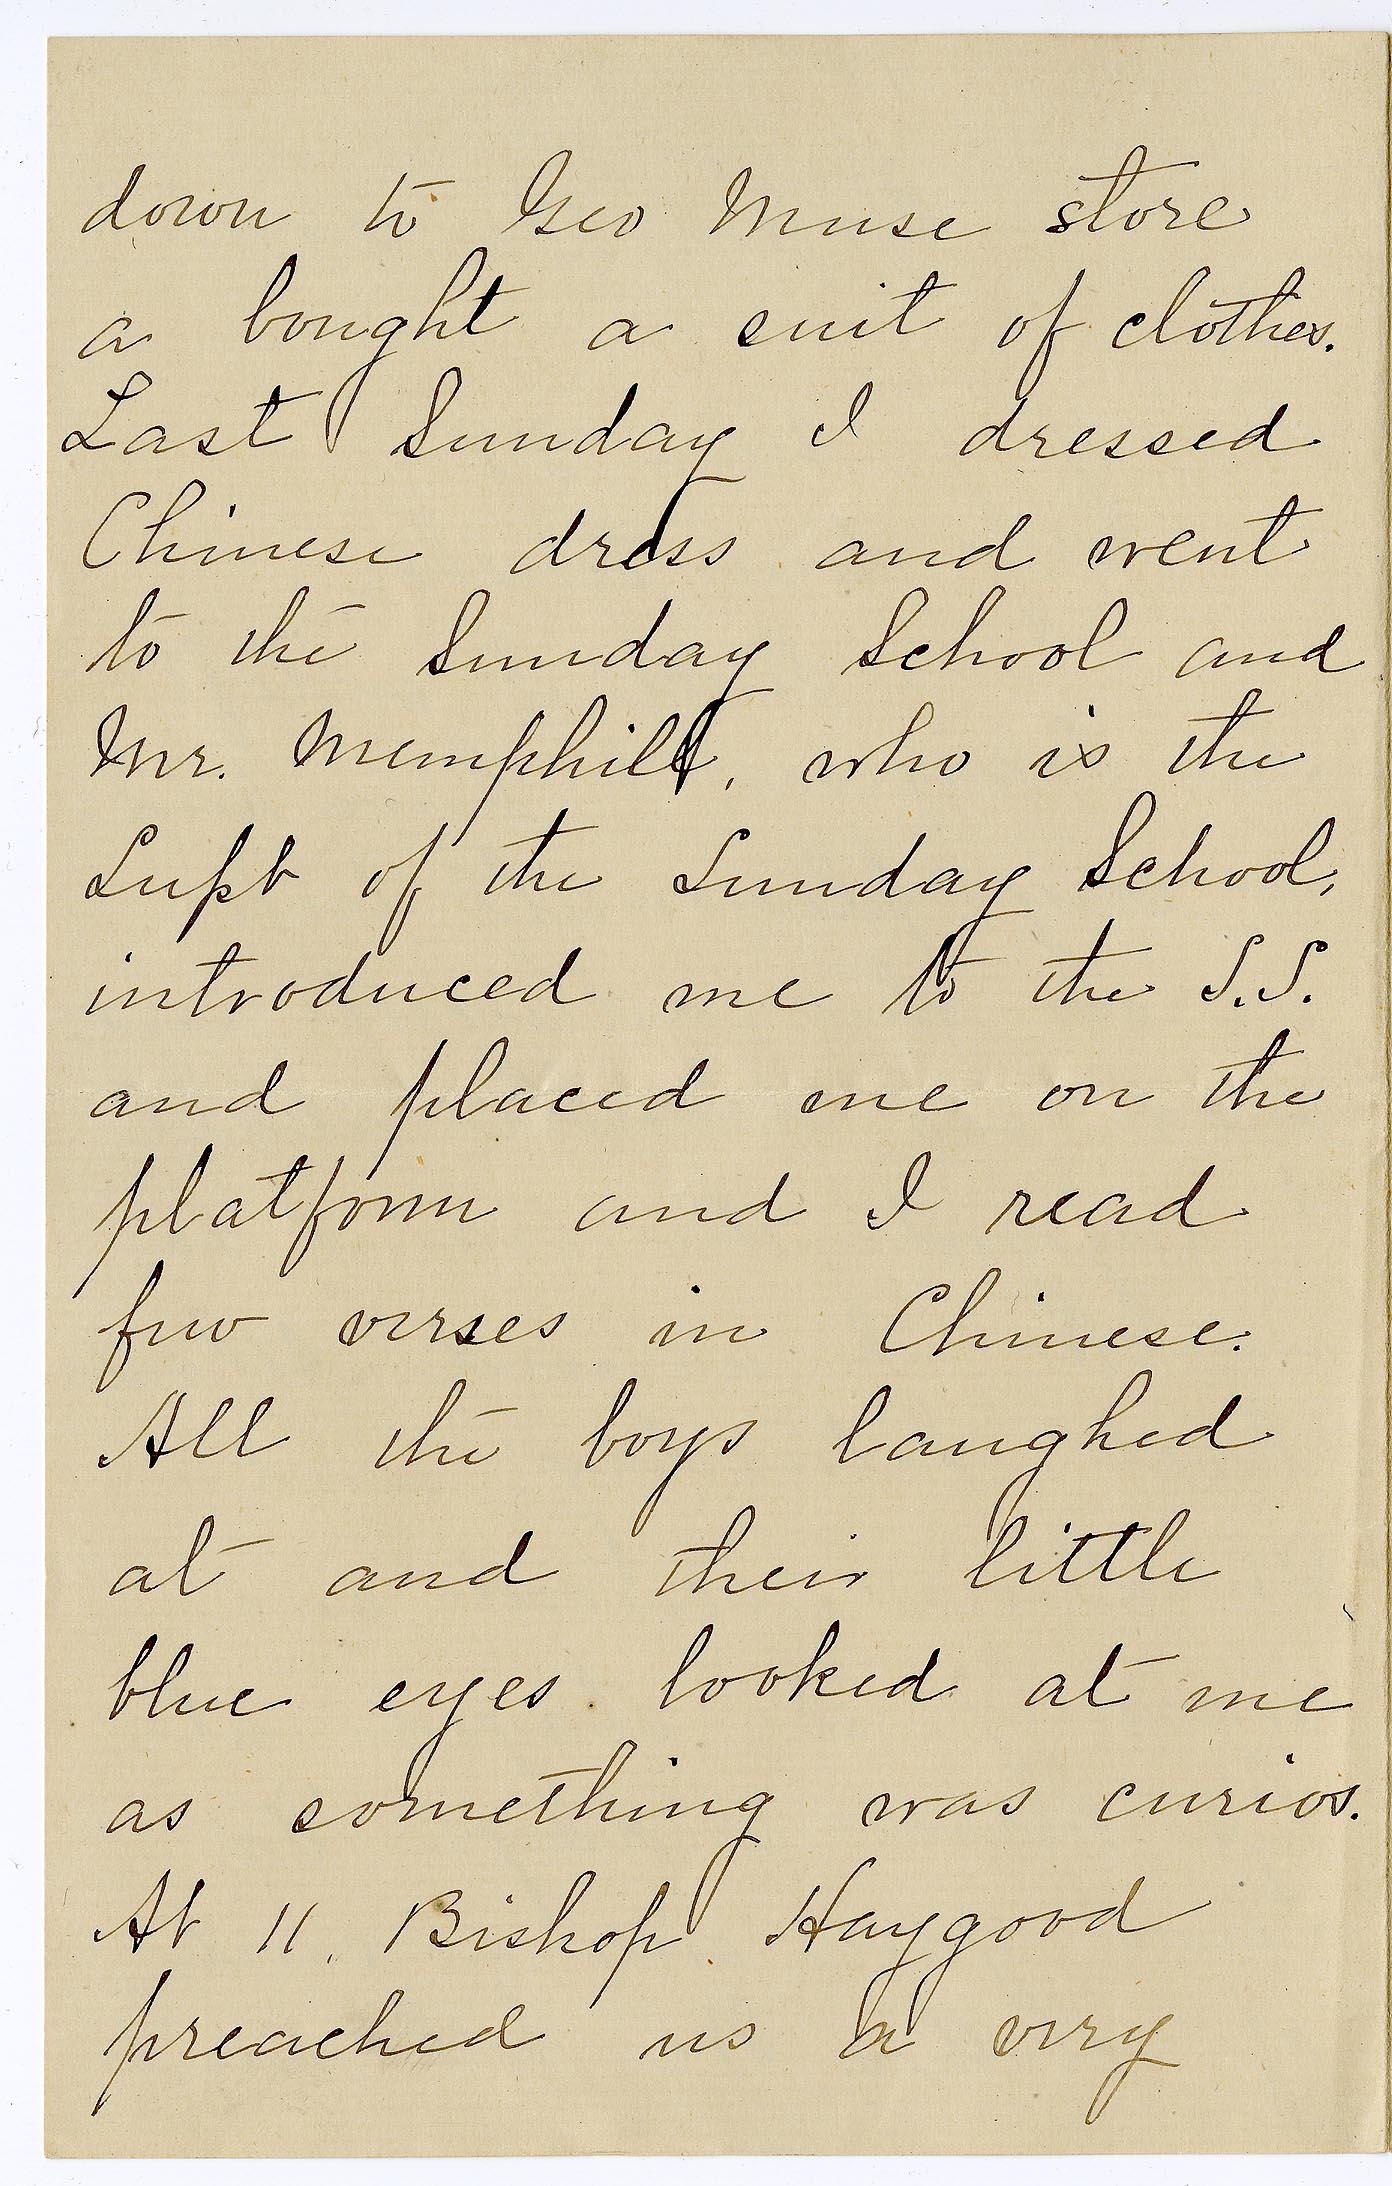 down to Geo Muse store
a bought a suit of clothes.
Last Sunday I dressed
Chinese dress and went
to the Sunday School and
Mr. Memphill, who is the
Supt of the Sunday School,
introduced me to the S.S.
and placed me on the
platform and I read
few verses in Chinese.
All the boys laughed
at and their little
blue eyes looked at me
as something was curios.
At 11. Bishop Haygood
preached us a very